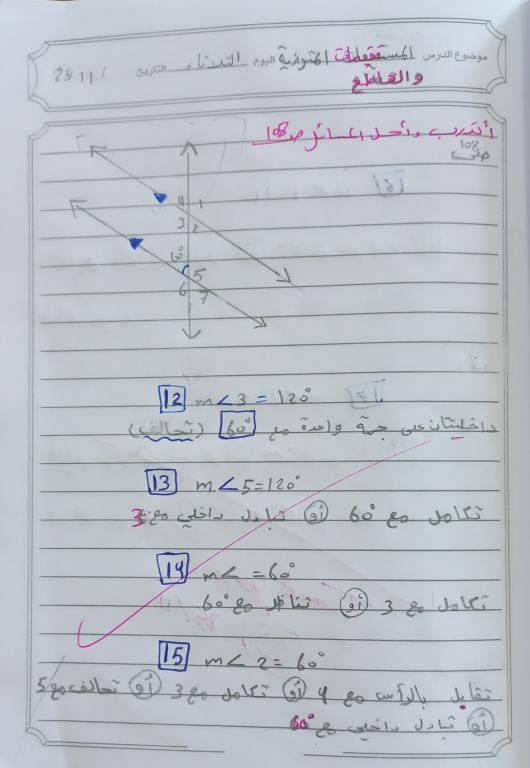 موضوع الدرس المستقيمات المتوازية اليوم الثلاثاء التاريخ 29/11/
والقاطع
أتدرب وأحل المسائل ص108
108
4 1
3 2
60°
5
6 7
12 m∠3 = 120°
داخليتان على جهة واحدة مع 60° (تحالف)
13 m∠5=120°
تكامل مع 60 أو تبادل داخلي مع 3
14 m∠ =60°
تكامل مع 3 أو تناظر مع 60°
15 m∠2= 60°
تقابل بالرأس مع 4 أو تكامل مع 3 أو تحالف مع 5
أو تبادل داخلي مع 60°